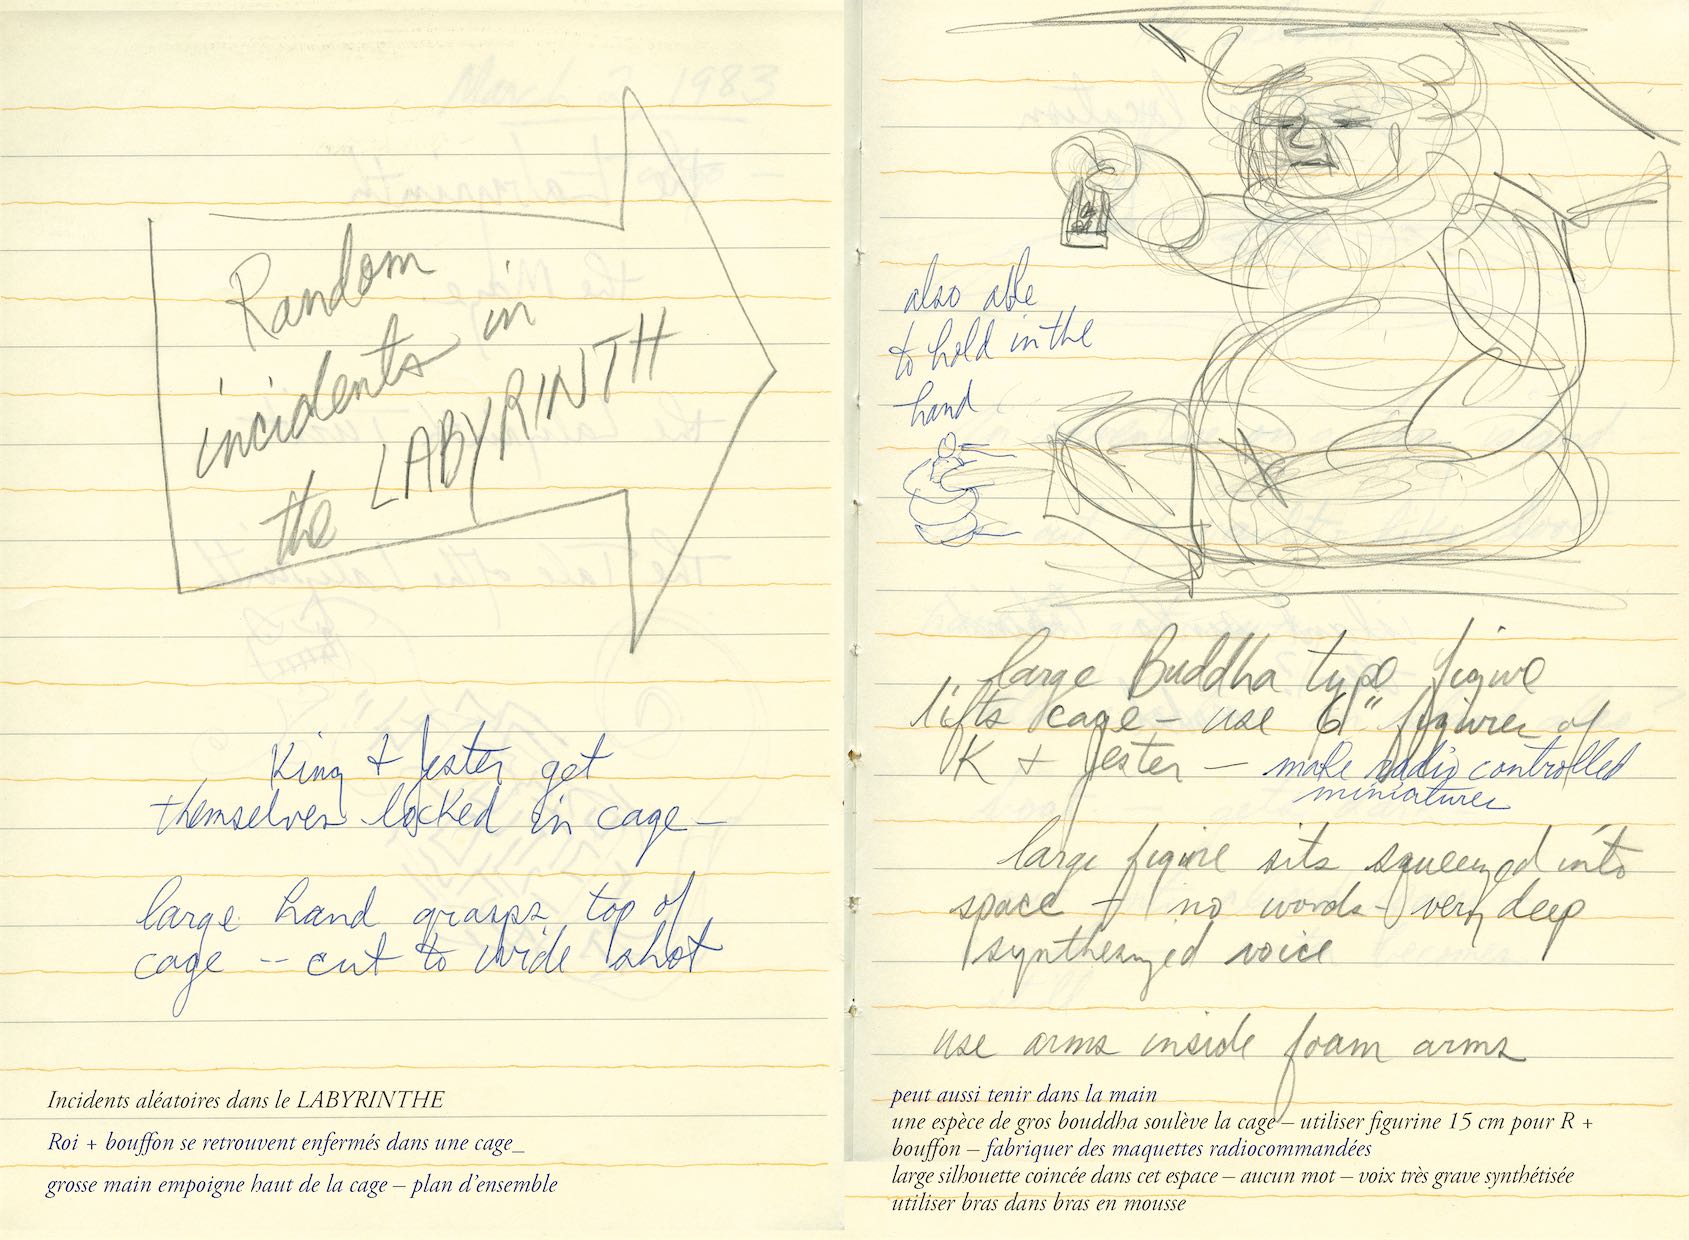 Random
incidents in
the LABYRINTH
King + Jester get
themselves locked in cage –
large hand grasps top of
cage -- cut to wide shot
Incidents aléatoires dans le LABYRINTHE
Roi + bouffon se retrouvent enfermés dans une cage_
grosse main empoigne haut de la cage – plan d'ensemble
also able
to hold in the
hand
large Buddha type figure
lifts cage – use 6" figures of
K + Jester – make radio controlled
miniatures
large figure sits squeezed into
space – no words – very deep
synthesized voice
use arms inside foam arms
peut aussi tenir dans la main
une espèce de gros bouddha soulève la cage – utiliser figurine 15 cm pour R +
bouffon – fabriquer des maquettes radiocommandées
large silhouette coincée dans cet espace – aucun mot – voix très grave synthétisée
utiliser bras dans bras en mousse